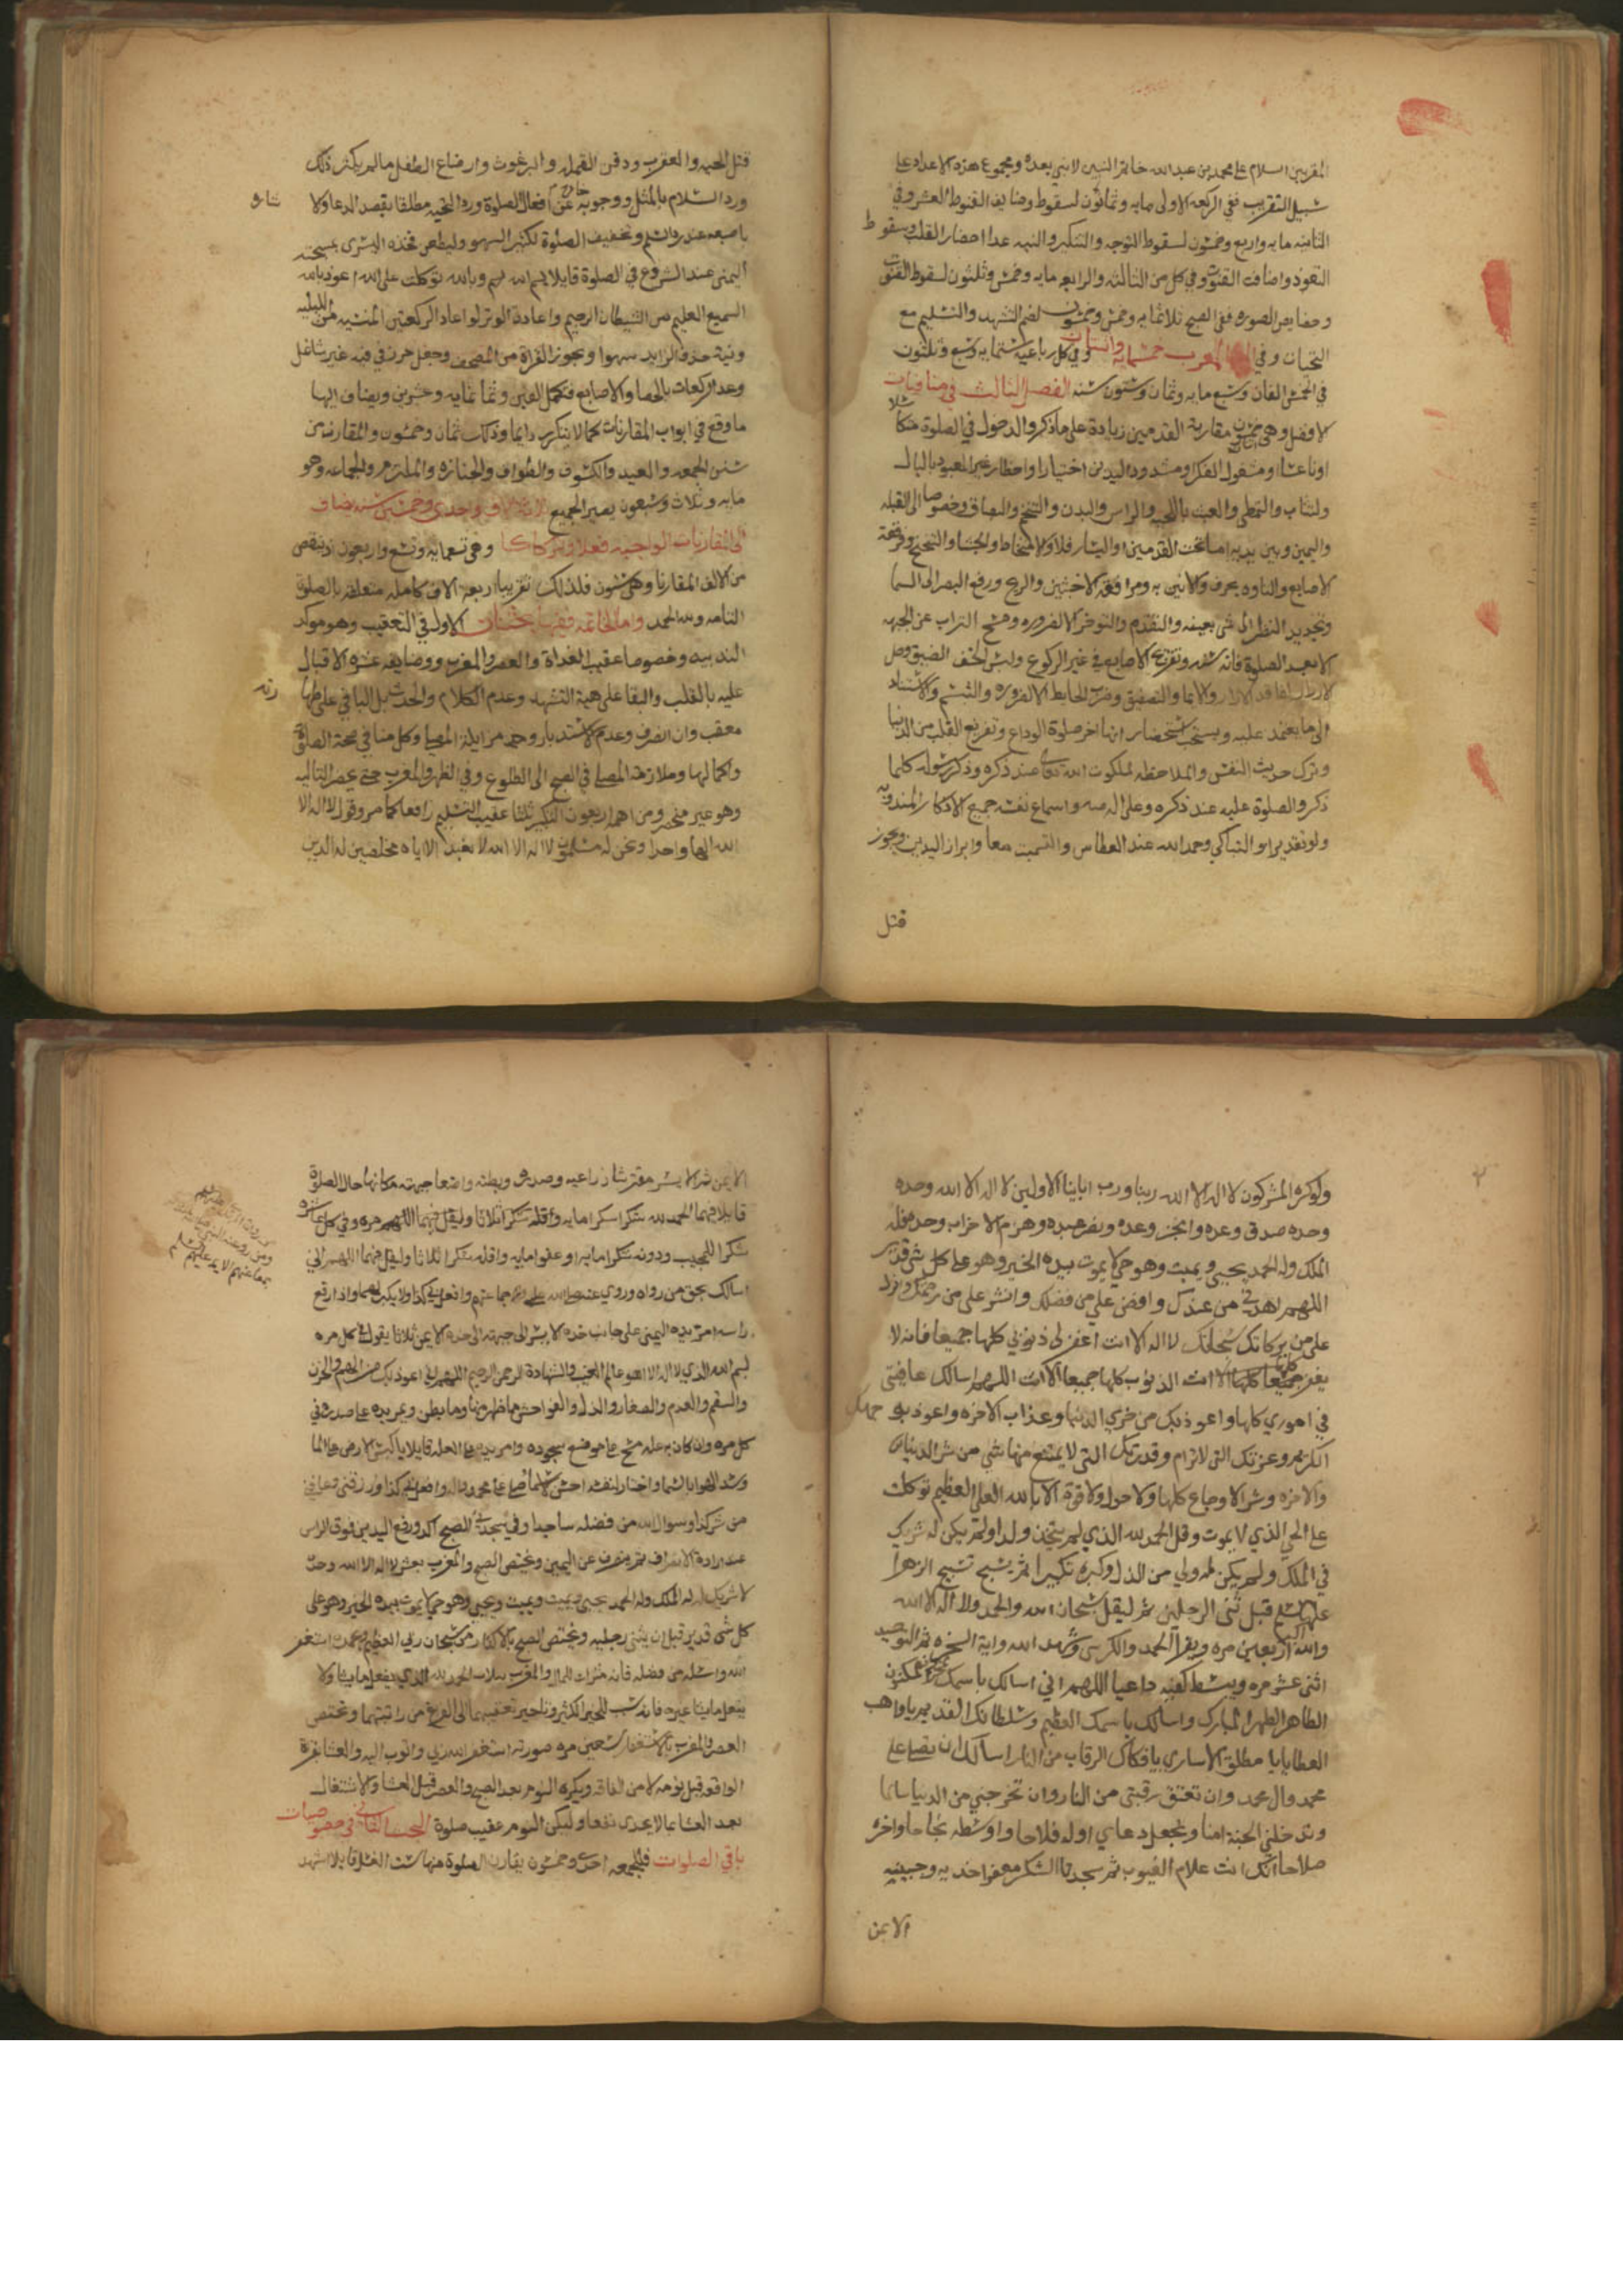 المقربين السلام على محمد بن عبد الله خاتم النبيين لا نبي بعده ومجموع هذه الاعداد على
سبيل التقريب ففي الركعة الاولى مايه وثمانون لسقوط وضايف القنوط العشر وفي
الثانيه مايه واربع وخمسون لسقوط التوجه والتكبير والنيه عدا احضار القلب وسقوط
التعوذ واضافت القنوت وفي كل من الثالثه والرابعه مايه وخمس وثلثون لسقوط القنوت
وخصايص السوره ففي الصبح ثلاثمايه وخمس وخمسون لضم التشهد والتسليم مع
التحيات وفي المغرب خمسمايه واثنتان وفي كل رباعية ستمايه وتسع وثلثون
في الخمس الفان وتسع مايه وثمان وستون سنه الفصل الثالث في منافيات
الافضل وهي خمسون مقاربة القدمين زيادة على ما ذكر والدخول في الصلوة متكاسلا
او ناعسا او مشغول الفكر او مشدود اليدين اختيارا واحطار غير المعبود بالبال
والتثاب والتمطي والعبث باللحيه والراس والبدن والتنخم والبصاق وخصوصا الى القبله
واليمين وبين يديه اما تحت القدمين او اليسار فلا والامتخاط والجشا والتنحنح وفرقعة
الاصابع والتاوه بحرف والانين به ومدافعة الاخبثين والريح ورفع البصر الى السما
وتحديد النظر الى شي بعينه والتقدم والتاخر الا لضروره ومسح التراب عن الجبهه
الا بعد الصلوة فانه سنه وتفريج الاصابع في غير الركوع ولبس الخف الضيق وحل
الازرار لفاقد الازار والايما والتصفيق وضرب الحايط الا لضروره والتبسم والاستناد
الى ما يعتمد عليه ويستحب استحضار انها اخر صلوة الوداع وتفريغ القلب من الدنيا
وترك حديث النفس والملاحظه لملكوت الله تعالى عند ذكره وذكر رسوله كلما
ذكر والصلوة عليه عند ذكره وعلى اله منه واسماع نفسه جميع الاذكار المندوبه
ولو تقديرا والتباكي وحمد الله عند العطاس والتسميت معا وابراز اليدين ويجوز
قتل
قتل الحيه والعقرب ودفن القمله والبرغوث وارضاع الطفل ما لم يكثر ذلك
ورد السلام بالمثل ووجوبه خارج عن افعال الصلوة ورد التحيه مطلقا بقصد الدعا والا
باصبعه عند ردّ السلم وتخفيف الصلوة لكثير السهو وليطعن فخذه اليسرى بمسبحته
اليمنى عند الشروع في الصلوة قايلا بسم الله وبالله توكلت على الله اعوذ بالله
السميع العليم من الشيطان الرجيم واعادة الوتر لو اعاد الركعتين المنسيه من الليليه
ونية حذف الزايد سهوا وتجوز القراة من المصحف وجعل خرز في فيه غير شاغل
وعد الركعات بالحصا والاصابع فتكمل الفين وثمانمايه وعشرين ويضاف اليها
ما وقع في ابواب المقارنات مما لا يتكرر دايما وذلك ثمان وخمسون والمقارنه من
سنن الجمعه والعيد والكسوف والطواف والجنازه والملتزم والجماعه وهو
مايه وثلاث وسبعون يصير الجميع ثلاثه الاف واحدى وخمسين سنه يضاف
الى المقارنات الواجبه فعلا وتركا كما وهي تسعمايه وتسع واربعون اذ ينقص
من الالف المقارنا وهي ستون فلذلك تقريبا اربعة الاف كامله متعلقة بالصلوة
التامه ولله الحمد واما الخاتمه ففيها بحثان الاول في التعقيب وهو موكد
الندبيه وخصوصا عقيب الغداة والعصر والمغرب ووضايفه عشره الاقبال
عليه بالقلب والبقا على هيئة التشهد وعدم الكلام والحدث بل الباقي على طهارته
معقب وان انصرف وعدم الاستدبار وحد مزايلة المصلى وكل منافي صحة الصلوة
وكمالها وملازمة المصلى في الصبح الى الطلوع وفي الظهر والمغرب حتى يحضر التاليه
وهو غير منحصر ومن اهمه اربعون التكبير ثلثا عقيب التسليم رافعا كما مر وقول لا اله الا
الله الها واحدا ونحن له مسلمون لا اله الا الله لا نعبد الا اياه مخلصين له الدين
ولو كره المشركون لا اله الا الله ربنا ورب ابائنا الاولين لا اله الا الله وحده
وحده صدق وعده وانجز وعده ونصر عبده وهزم الاحزاب وحده فله
الملك وله الحمد يحيي ويميت وهو حي لا يموت بيده الخير وهو على كل شي قدير
اللهم اهدني من عندك وافض علي من فضلك وانشر علي من رحمتك وانزل
علي من بركاتك سبحانك لا اله الا انت اغفر لي ذنوبي كلها جميعا فانه لا
يغفر الذنوب كلها جميعا الا انت اللهم اني اسالك عافيتي
في اموري كلها واعوذ بك من خزي الدنيا وعذاب الاخره واعوذ بوجهك
الكريم وعزتك التي لا ترام وقدرتك التي لا يمتنع منها شي من شر الدنيا
والاخره وشر الاوجاع كلها ولا حول ولا قوة الا بالله العلي العظيم توكلت
على الحي الذي لا يموت وقل الحمد لله الذي لم يتخذ ولدا ولم يكن له شريك
في الملك ولم يكن له ولي من الذل وكبره تكبيرا ثم يسبح تسبيح الزهرا
عليها السلم قبل ثني الرجلين ثم ليقل سبحان الله والحمد لله ولا اله الا الله
والله اكبر اربعين مره ويقرا الحمد والكرسي وشهد الله واية السخره ثم التوحيد
اثني عشر مره ويبسط كفيه داعيا اللهم اني اسالك باسمك المكنون
الطاهر الطهر المبارك واسالك باسمك العظيم وسلطانك القديم يا واهب
العطايا يا مطلق الاسارى يا فكاك الرقاب من النار اسالك ان تصلي على
محمد وال محمد وان تعتق رقبتي من النار وان تخرجني من الدنيا سالما
وتدخلني الجنة امنا وتجعل دعاي اوله فلاحا واوسطه نجاحا واخره
صلاحا انك انت علام الغيوب ثم سجدتا الشكر معفرا خديه وجبينيه
الايمن
الايمن ثم الايسر مفترشا ذراعيه وصدره وبطنه واضعا جبهته مكانها حال الصلوة
قايلا فيهما الحمد لله شكرا شكرا مايه واقله شكرا ثلاثا وليقل فيهما اللهم مره وفي كل عاشره
شكرا للمجيب ودونه شكرا مايه او عفوا مايه واقله شكرا ثلاثا وليقل فيهما اللهم اني
اسالك بحق من رواه وروي عنه
راسه امر يده اليمنى على جانب خده الايسر الى جبهته الى خده الايمن ثلاثا يقول في كل مره
بسم الله الذي لا اله الا هو عالم الغيب والشهادة الرحمن الرحيم اللهم اني اعوذ بك من الهم والحزن
والسقم والعدم والصغار والذل والفواحش ما ظهر منها وما بطن ويمر يده على صدره في
كل مره وان كان به عله مسح على موضع سجوده وامر يده على العله قايلا يا من كبس الارض على الما
وسد الهوا بالسما واختار لنفسه احسن الاسما صل على محمد واله وافعل بي كذا وارزقني وعافني
من شر كذا وسوال الله من فضله ساجدا وفي سجدتي الصبح اكد ورفع اليدين فوق الراس
عند ارادة الانصراف ثم ينصرف عن اليمين ويختص الصبح والمغرب بعشر لا اله الا الله وحده
لا شريك له له الملك وله الحمد يحيي ويميت ويميت ويحيي وهو حي لا يموت بيده الخير وهو على
كل شي قدير قبل ان يثني رجليه ويختص الصبح بالاكثار من سبحان ربي العظيم وبحمده استغفر
الله واسئله من فضله فانه مثراة للمال والمغرب بثلاث الحمد لله الذي يفعل ما يشا ولا
يفعل ما يشا غيره فانه سبب للخير الكثير وتاخير تعقيبها الى الفراغ من راتبتها ويختص
العصر والمغرب بالاستغفار سبعين مره صورته استغفر الله ربي واتوب اليه والعشا بقراة
الواقعه قبل نومه لامن الفاقه ويكره النوم بعد الصبح والعصر وقبل العشا والاشتغال
بعد العشا بما لا يجدي نفعا وليكن النوم عقيب صلوة البحث الثاني في خصوصيات
باقي الصلوات فللجمعه احدى وخمسون يقارن الصلوة منها ست الغسل قايلا اشهد